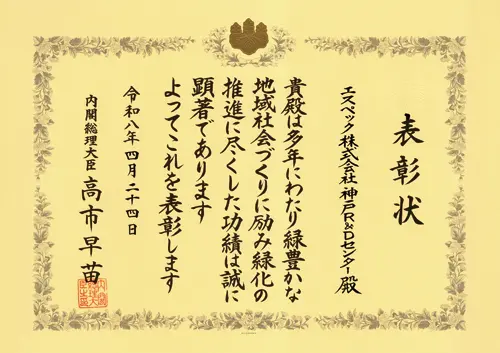 表彰状
エスペック株式会社 神戸R&Dセンター 殿
貴殿は多年にわたり緑豊かな
地域社会づくりに励み緑化の
推進に尽くした功績は誠に
顕著であります
よってこれを表彰します
令和八年四月二十四日
内閣総理大臣 高市早苗